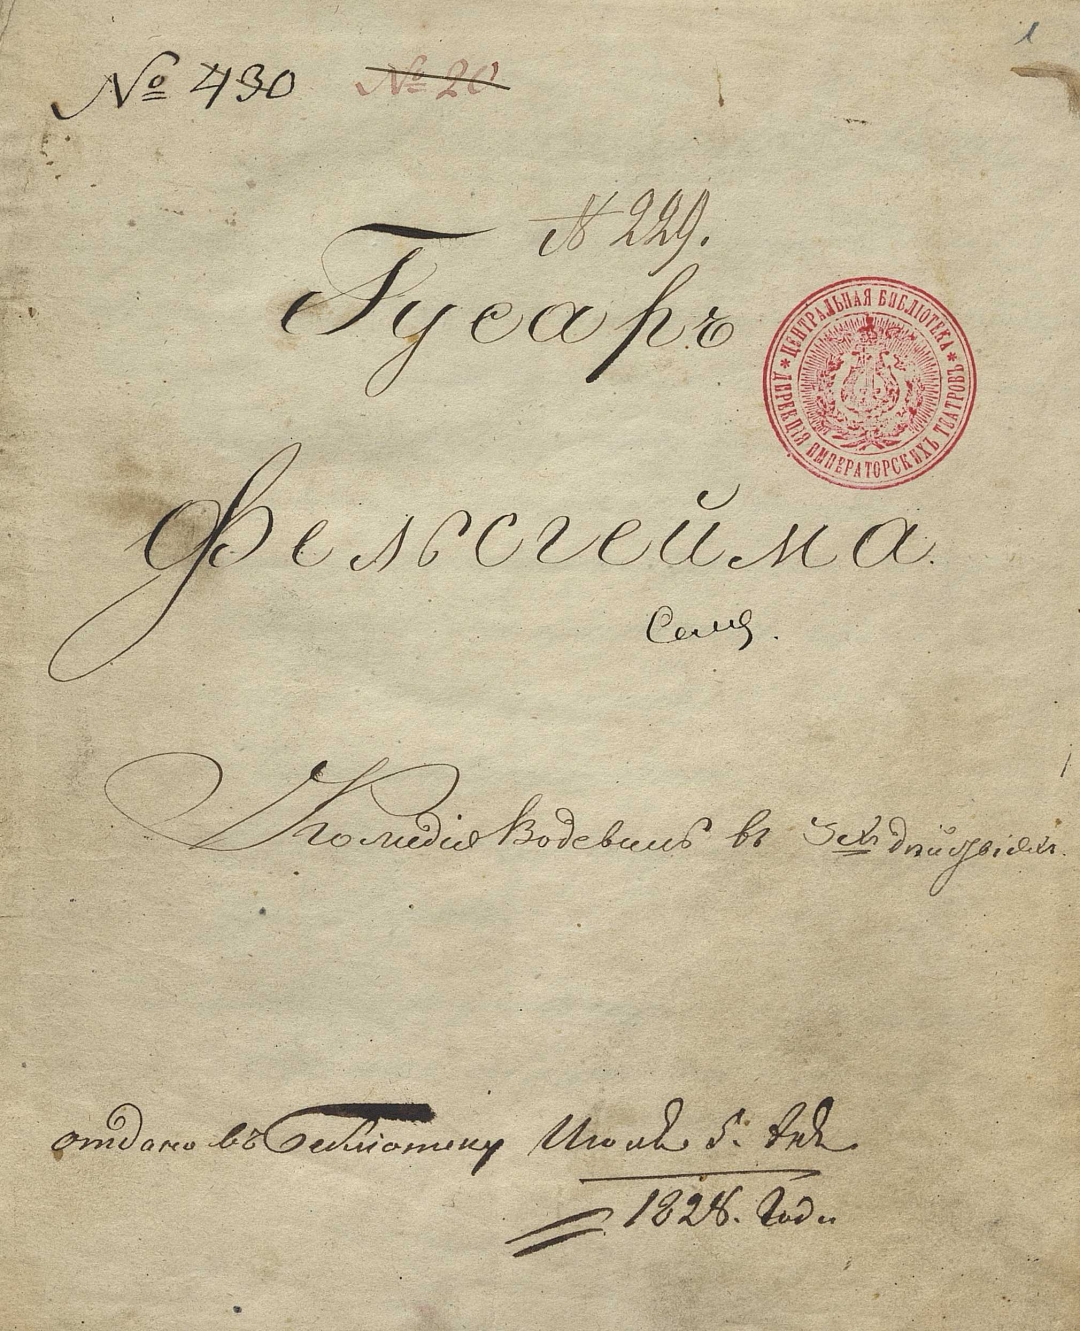 1
№ 430 № 20
№ 229.
Гусаръ
ЦЕНТРАЛЬНАЯ БИБЛІОТЕКА * ДИРЕКЦІЯ ИМПЕРАТОРСКИХЪ ТЕАТРОВЪ *
Фельсгейма.
Комедія Водевиль въ 3хъ дѣйствіяхъ.
отдано въ Библіотеку Июля 5. дня
1828. Года